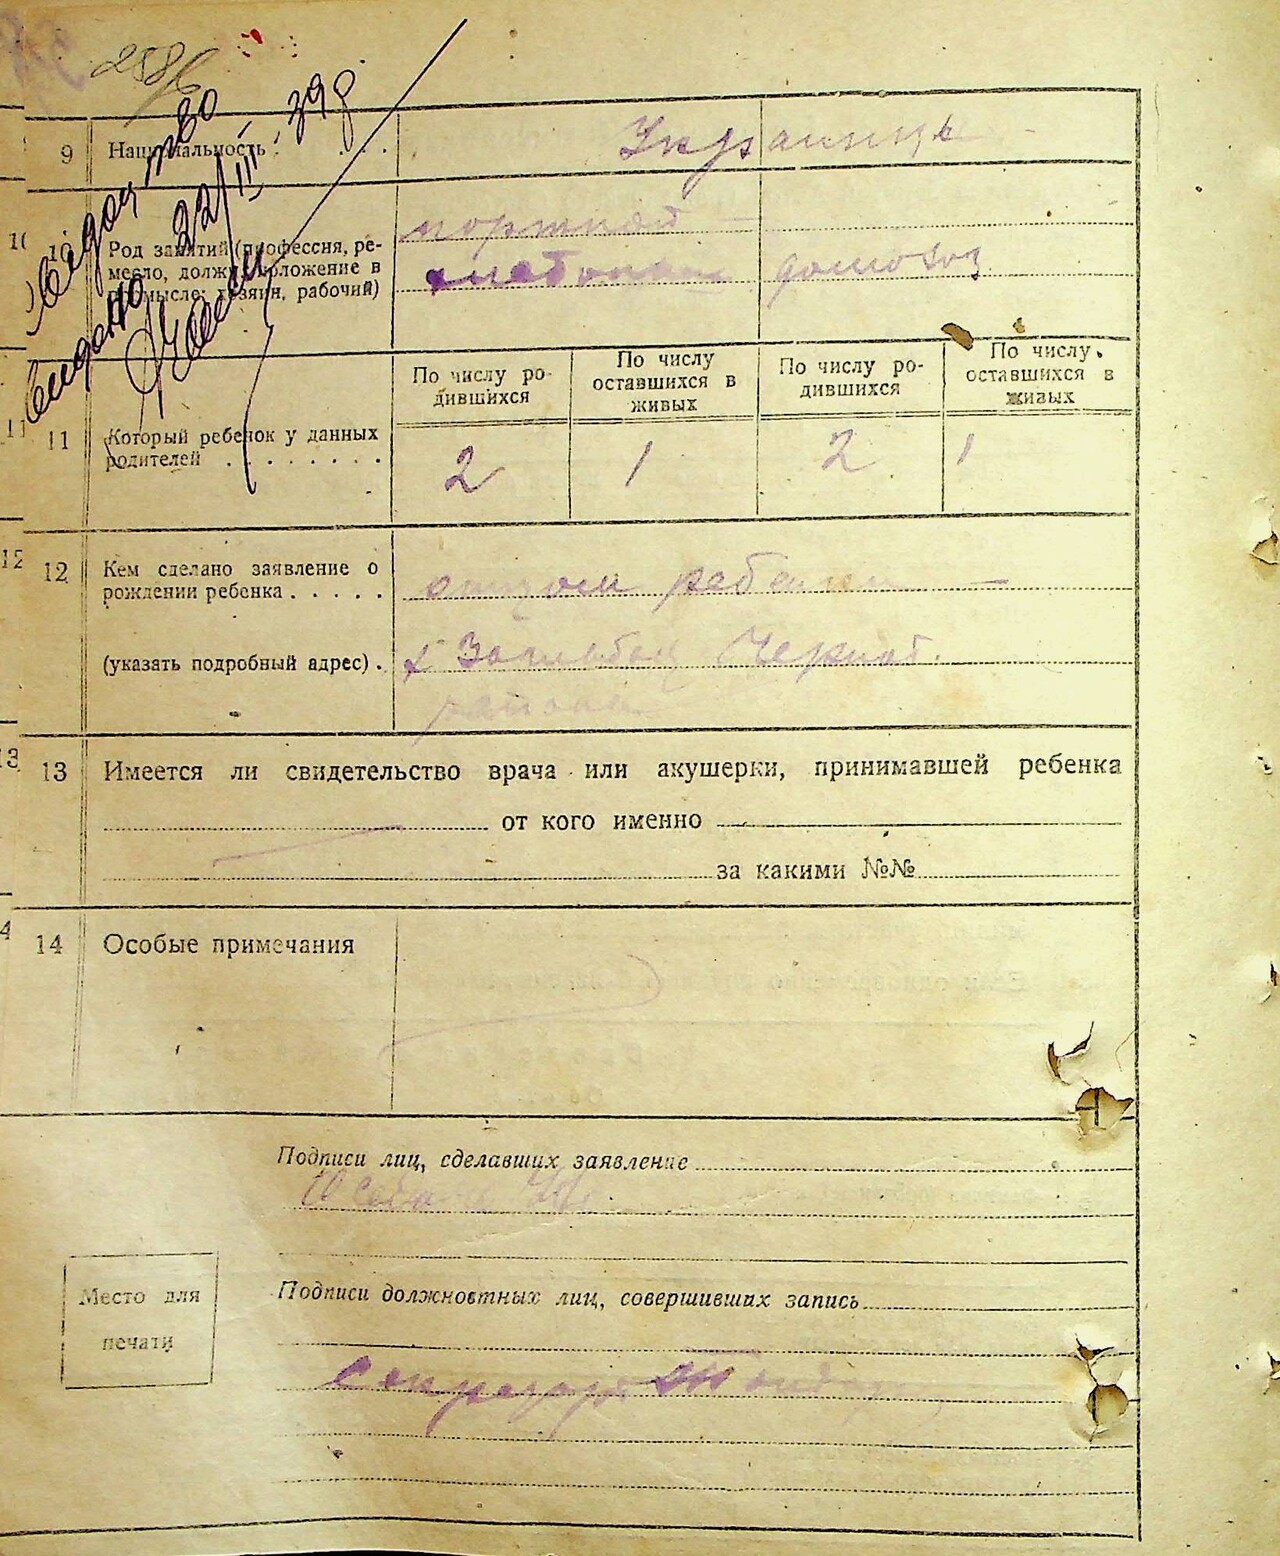 9 Национальность . . . . Украинцы
22/III 39 р
10 Род занятий (профессия, ре-
месло, должн. положение в
промысле: хозяин, рабочий)
портной
домохоз
По числу ро-
дившихся
По числу
оставшихся в
живых
По числу ро-
дившихся
По числу
оставшихся в
живых
11 Который ребенок у данных
родителей . . . . . . .
2 1 2 1
12 Кем сделано заявление о
рождении ребенка . . . . .
отцом ребенка
(указать подробный адрес) .
района
13 Имеется ли свидетельство врача или акушерки, принимавшей ребенка
от кого именно
за какими №№
14 Особые примечания
Подписи лиц, сделавших заявление
Подписи должностных лиц, совершивших запись
Место для
печати
Секретарь